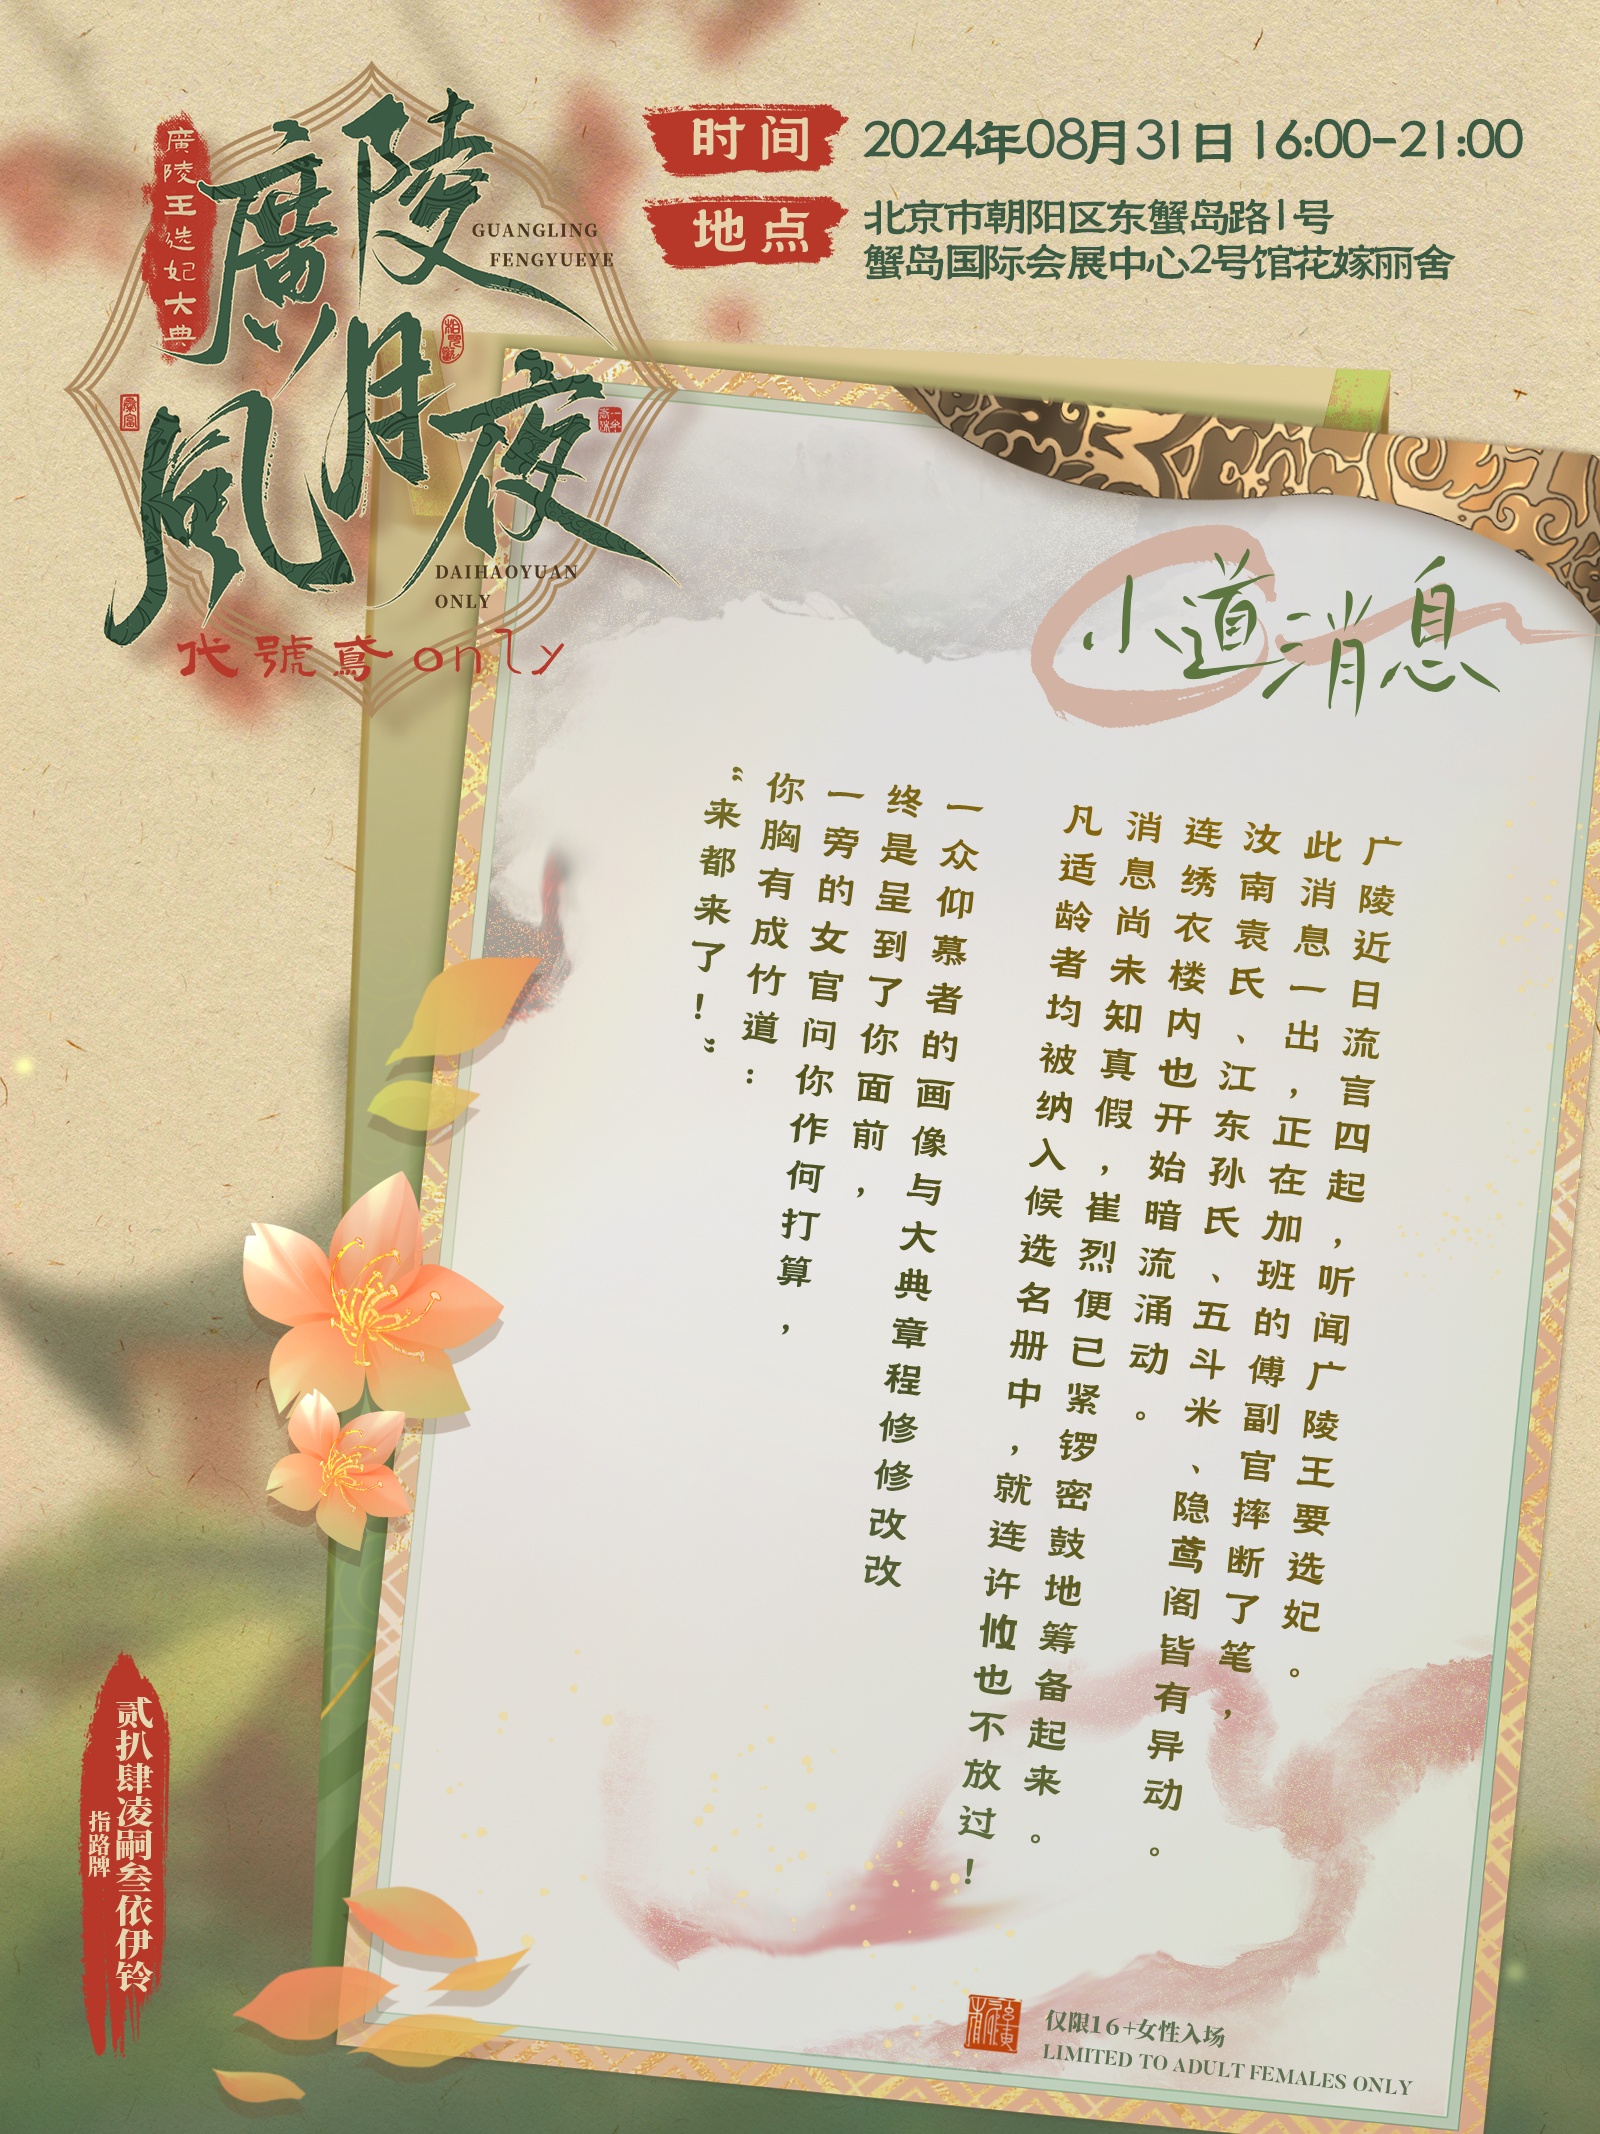 廣陵王选妃大典
廣陵
風月夜
GUANGLING
FENGYUEYE
DAIHAOYUAN
ONLY
代號鳶only
时间
2024年08月31日 16:00-21:00
地点
北京市朝阳区东蟹岛路1号
蟹岛国际会展中心2号馆花嫁丽舍
小道消息
广陵近日流言四起，听闻广陵王要选妃。
此消息一出，正在加班的傅副官摔断了笔，
汝南袁氏、江东孙氏、五斗米、隐鸢阁皆有异动。
连绣衣楼内也开始暗流涌动。
消息尚未知真假，崔烈便已紧锣密鼓地筹备起来。
凡适龄者均被纳入候选名册中，就连许攸也不放过！
一众仰慕者的画像与大典章程修修改改
终是呈到了你面前，
一旁的女官问你作何打算，
你胸有成竹道：
“来都来了！”
贰扒肆凌嗣叁依伊铃
指路牌
仅限16+女性入场
LIMITED TO ADULT FEMALES ONLY